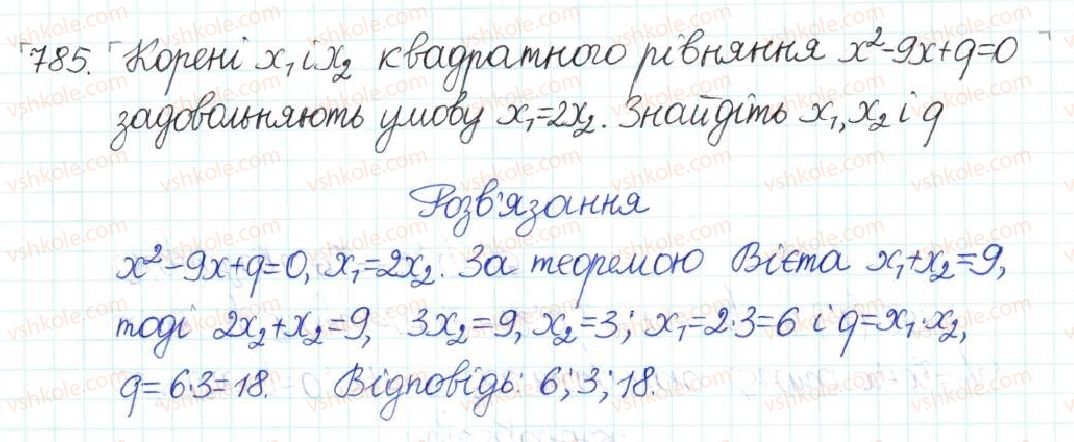 785. Корені x₁ і x₂ квадратного рівняння x²-9x+q=0
задовольняють умову x₁=2x₂. Знайдіть x₁, x₂ і q
Розв'язання
x²-9x+q=0, x₁=2x₂. За теоремою Вієта x₁+x₂=9,
тоді 2x₂+x₂=9, 3x₂=9, x₂=3; x₁=2·3=6 і q=x₁·x₂,
q=6·3=18. Відповідь: 6; 3; 18.